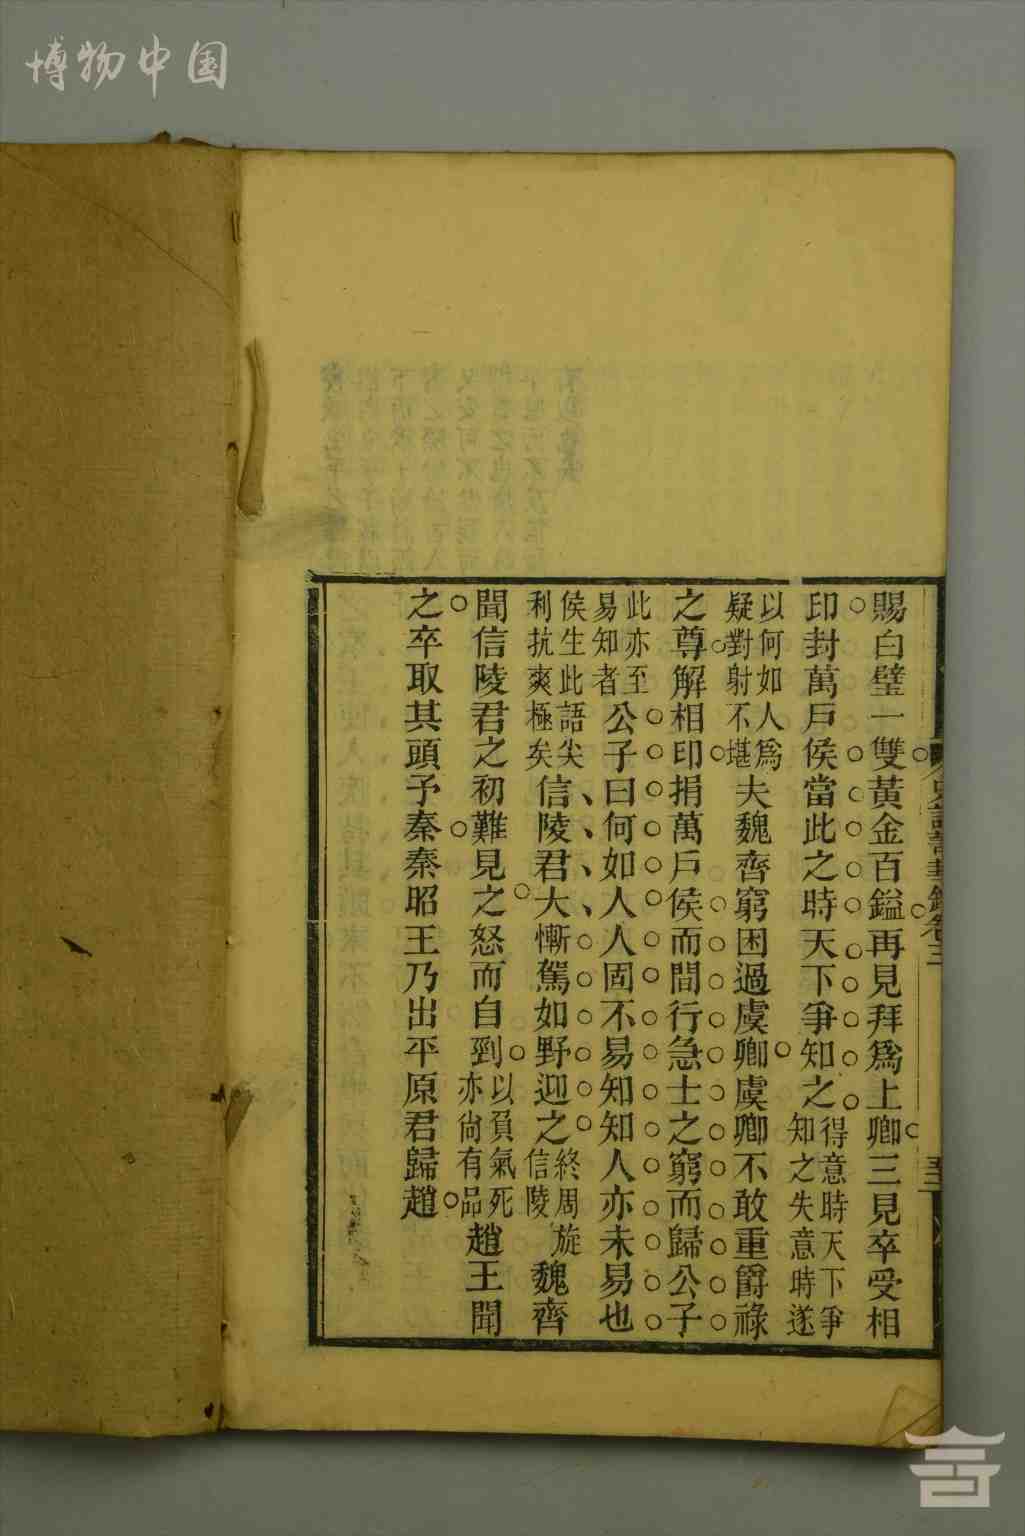 博物中国
賜白璧一雙黃金百鎰再見拜爲上卿三見卒受相
印封萬戶侯當此之時天下爭知之得意時天下爭知之失意時遂
以何如人爲疑對射不堪夫魏齊窮困過虞卿虞卿不敢重爵祿
之尊解相印捐萬戶侯而間行急士之窮而歸公子
此亦至易知者公子曰何如人人固不易知知人亦未易也
侯生此語尖利抗爽極矣信陵君大慚駕如野迎之終周旋信陵魏齊
聞信陵君之初難見之怒而自剄以負氣死亦尙有品趙王聞
之卒取其頭予秦秦昭王乃出平原君歸趙